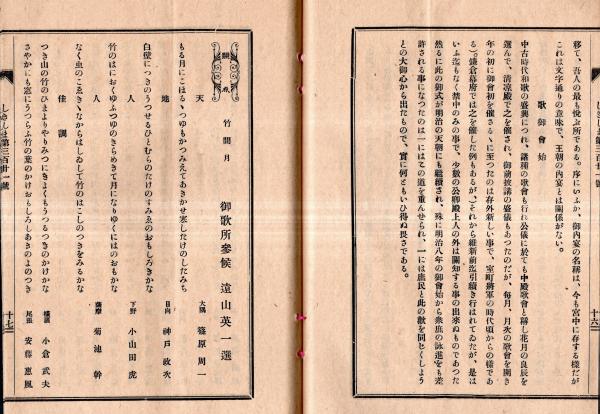 移て、吾人の最も悦ぶ所である。序にいふが、御内宴の名稱は、今も宮中に存する樣だが
これは文字通りの意味で、王朝の内宴とは關係がない。
歌御會始
中古時代和歌の盛興につれ、諸種の歌會も行れ公儀に於ても中殿歌會と稱し花月の良辰を
選んで、清凉殿で之を催され、御前披講の盛儀もあつたのだが、毎月、月次の歌會を開き
年の初に御會初を催さるゝに至つたのは存外新しい事で、室町將軍の時代頃からの樣であ
る（鎌倉幕府では之を催した例もあるが）それから維新前迄引續き行はれてゐたが、是は
いふ迄もなく禁中のみの事で、少數の公卿殿上人の外は關知する事の出來ぬものであつた
然るに此の御式が明治の天朝にも繼續され、殊に明治八年の御會始から衆庶の詠進をも差
許される事になつたのは一にはこの道を重んせられ、一には庶民と此の歡を同じくしよう
との大御心から出たもので、實に何ともいひ得ぬ畏さである。
しきしま第三百廿一號
十六
竹間月
御歌所參候 遠山英一選
天
大隅 篠原周一
もる月にこほるゝつゆもかつみえてあきかせ寒したけのしたみち
地
日向 神戸政次
白壁につきのうつせるひとむらのたけのすみゑのおもしろきかな
人
下野 小山田虎
竹のはにおくゆふつゆのきらめきて月になりゆくにはのおもかな
人
薩摩 菊池幹
なく虫のこゑきゝなからはしゐして竹のはこしのつきをみるかな
佳調
橫濱 小倉武夫
つき山の竹のひまよりやりみつにきよくもうつるつきのかけかな
尾張 安藤惠風
さやかにも窓にうつらふ竹の葉のかけおもしろしあきのよのつき
しきしま第三百廿一號
十七